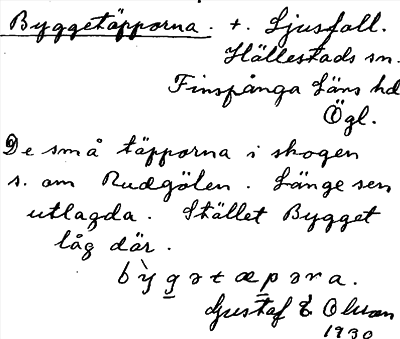 Byggetäpporna. +. Ljusfall.
Hällestads sn.
Finspånga läns hd
Ögl.
De små täpporna i skogen
s. om Rudgölen. Länge sen
utlagda. Stället Bygget
låg där.
bỳgətæpəra.
Gustaf E Olsson
1930